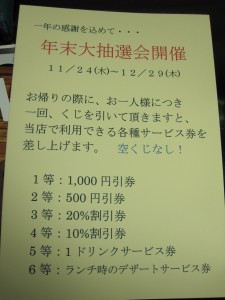 一年の感謝を込めて・・・
年末大抽選会開催
11／24(木)～12／29(木)
お帰りの際に、お一人様につき
一回、くじを引いて頂きますと、
当店で利用できる各種サービス券を
差し上げます。 空くじなし！
1等：1,000円引券
2等：500円引券
3等：20%割引券
4等：10%割引券
5等：1ドリンクサービス券
6等：ランチ時のデザートサービス券